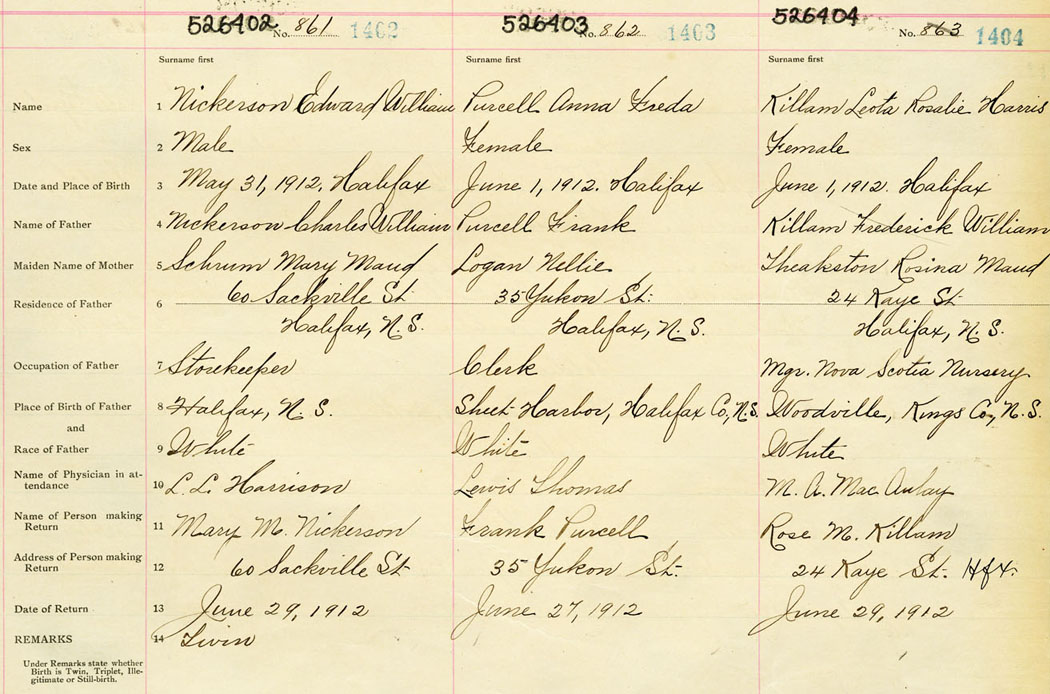 526402 No. 861 1402 526403 No. 862 1403 526404 No. 863 1404
Surname first Surname first Surname first
Name 1 Nickerson Edward William Purcell Anna Freda Killam Leota Rosalie Harris
Sex 2 Male Female Female
Date and Place of Birth 3 May 31, 1912. Halifax June 1, 1912. Halifax June 1, 1912. Halifax
Name of Father 4 Nickerson Charles William Purcell Frank Killam Frederick William
Maiden Name of Mother 5 Schrum Mary Maud Logan Nellie Theakston Rosina Maud
Residence of Father 6 60 Sackville St 35 Yukon St. 24 Kaye St
Halifax, N.S. Halifax, N.S. Halifax, N.S.
Occupation of Father 7 Storekeeper Clerk Mgr. Nova Scotia Nursery
Place of Birth of Father 8 Halifax, N.S. Sheet Harbor, Halifax Co, N.S. Woodville, Kings Co, N.S.
and
Race of Father 9 White White White
Name of Physician in at-
tendance 10 L. L. Harrison Lewis Thomas M. A. MacAulay
Name of Person making
Return 11 Mary M. Nickerson Frank Purcell Rose M. Killam
Address of Person making
Return 12 60 Sackville St 35 Yukon St. 24 Kaye St. Hfx.
Date of Return 13 June 29, 1912 June 27, 1912 June 29, 1912
REMARKS 14 Twin
Under Remarks state whether
Birth is Twin, Triplet, Ille-
gitimate or Still-birth.